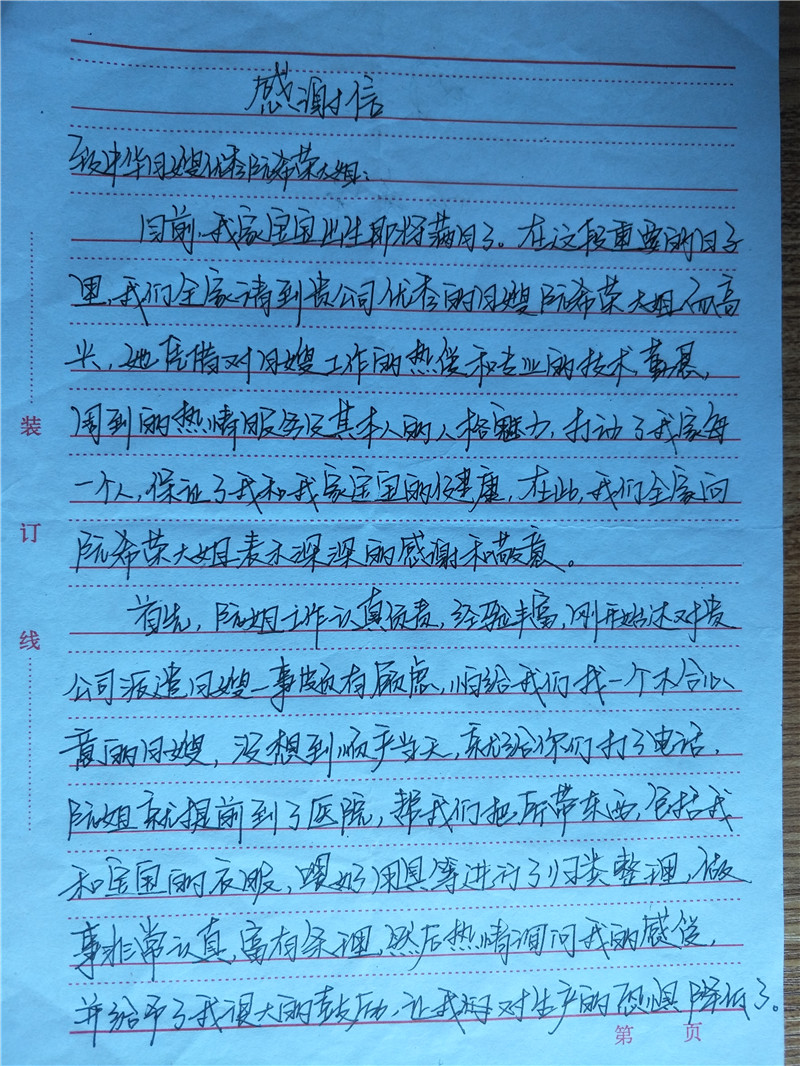 感谢信
致中华月嫂优秀阮希荣大姐：
目前，我家宝宝出生即将满月了。在这段重要的日子
里，我们全家请到贵公司优秀的月嫂阮希荣大姐而高
兴，她凭借对月嫂工作的热爱和专业的技术，
周到的热情服务及其本人的人格魅力，打动了我家每
一个人，保证了我和我家宝宝的健康，在此，我们全家向
阮希荣大姐表示深深的感谢和敬意。
首先，阮姐工作认真负责，经验丰富，刚开始还对贵
公司派遣月嫂一事颇有顾虑，怕给我们找一个不合心
意的月嫂，没想到顺产当天，就给你们打了电话，
阮姐就提前到了医院，帮我们把所带东西，包括我
和宝宝的衣服，喂奶用具等进行了归类整理，做
事非常认真，富有条理，然后热情询问我的感受，
并给予了我很大的鼓励，让我对生产的恐惧降低了。
装
订
线
第 页